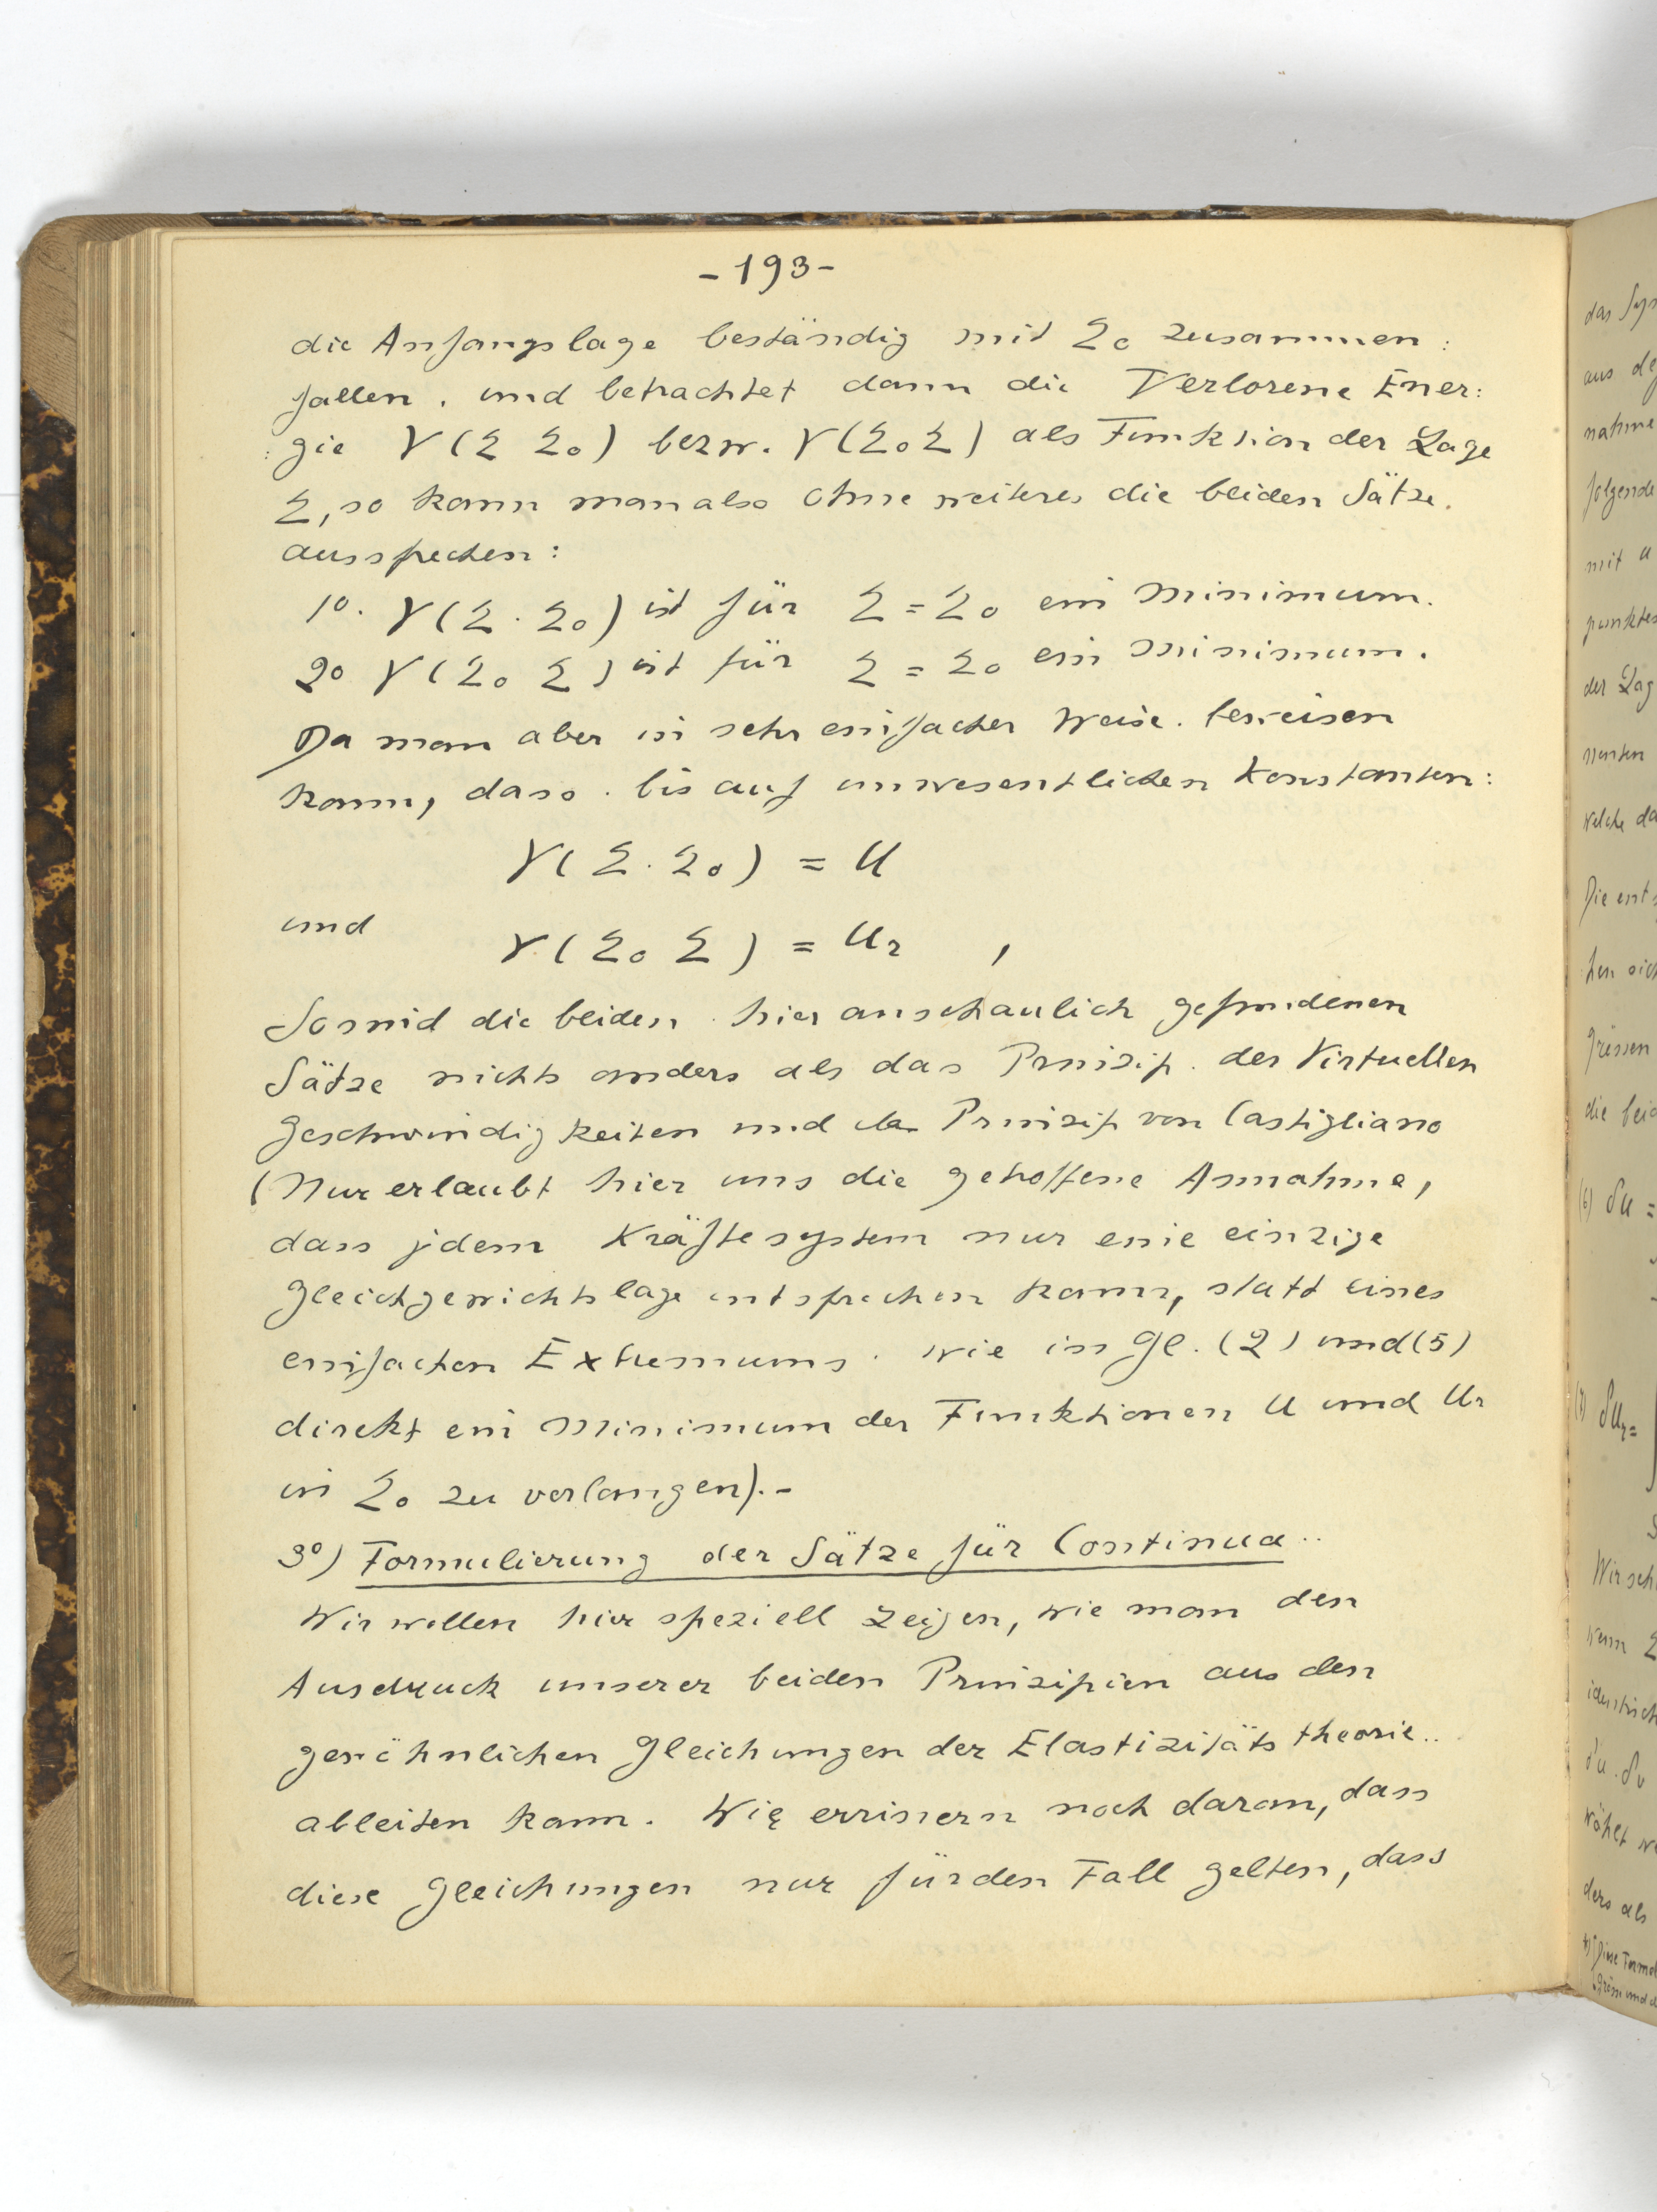 -193-
die Anfangslage beständig mit Σ₀ zusammen:
fallen, und betrachtet dann die Verlorene Ener:
:gie V(Σ Σ₀) bezw. V(Σ₀Σ) als Funktion der Lage
Σ, so kann man also ohne weiteres die beiden Sätze.
aussprechen:
1⁰. V(Σ·Σ₀) ist für Σ = Σ₀ ein Minimum.
2⁰ V(Σ₀ Σ) ist für Σ = Σ₀ ein Minimum.
Da man aber in sehr einfacher Weise. beweisen
kann, dass. bis auf unwesentlichen Konstanten:
V(Σ·Σ₀) = U
und
V(Σ₀ Σ) = U₂ ,
So sind die beiden hier anschaulich gefundenen
Sätze nichts anders als das Prinzip. der Virtuellen
Geschwindigkeiten und das Prinzip von Castigliano
(Nur erlaubt hier uns die getroffene Annahme,
dass jedem Kräftesystem nur eine einzige
Gleichgewichtslage entsprechen kann, statt eines
einfachen Extremums. wie in Gl. (2) und (5)
direkt ein Minimum der Funktionen U und U₂
in Σ₀ zu verlangen).-
3⁰) Formulierung der Sätze für Continua..
Wir wollen hier speziell zeigen, wie man den
Ausdruck unserer beiden Prinzipien aus den
gewöhnlichen Gleichungen der Elastizitätstheorie..
ableiten kann. Wir errinern noch daran, dass
diese Gleichungen nur für den Fall gelten, dass
das Sys
aus de
nahme
folgende
mit u
punktes
der Lag
menten
welche da
Die ent
hen sich
Grössen
die beid
(6) δU =
(7) δU₂=
Wir sch
wenn Σ
identisch
δu. δv
wählt we
ders als
*) Diese Formel
Green und d